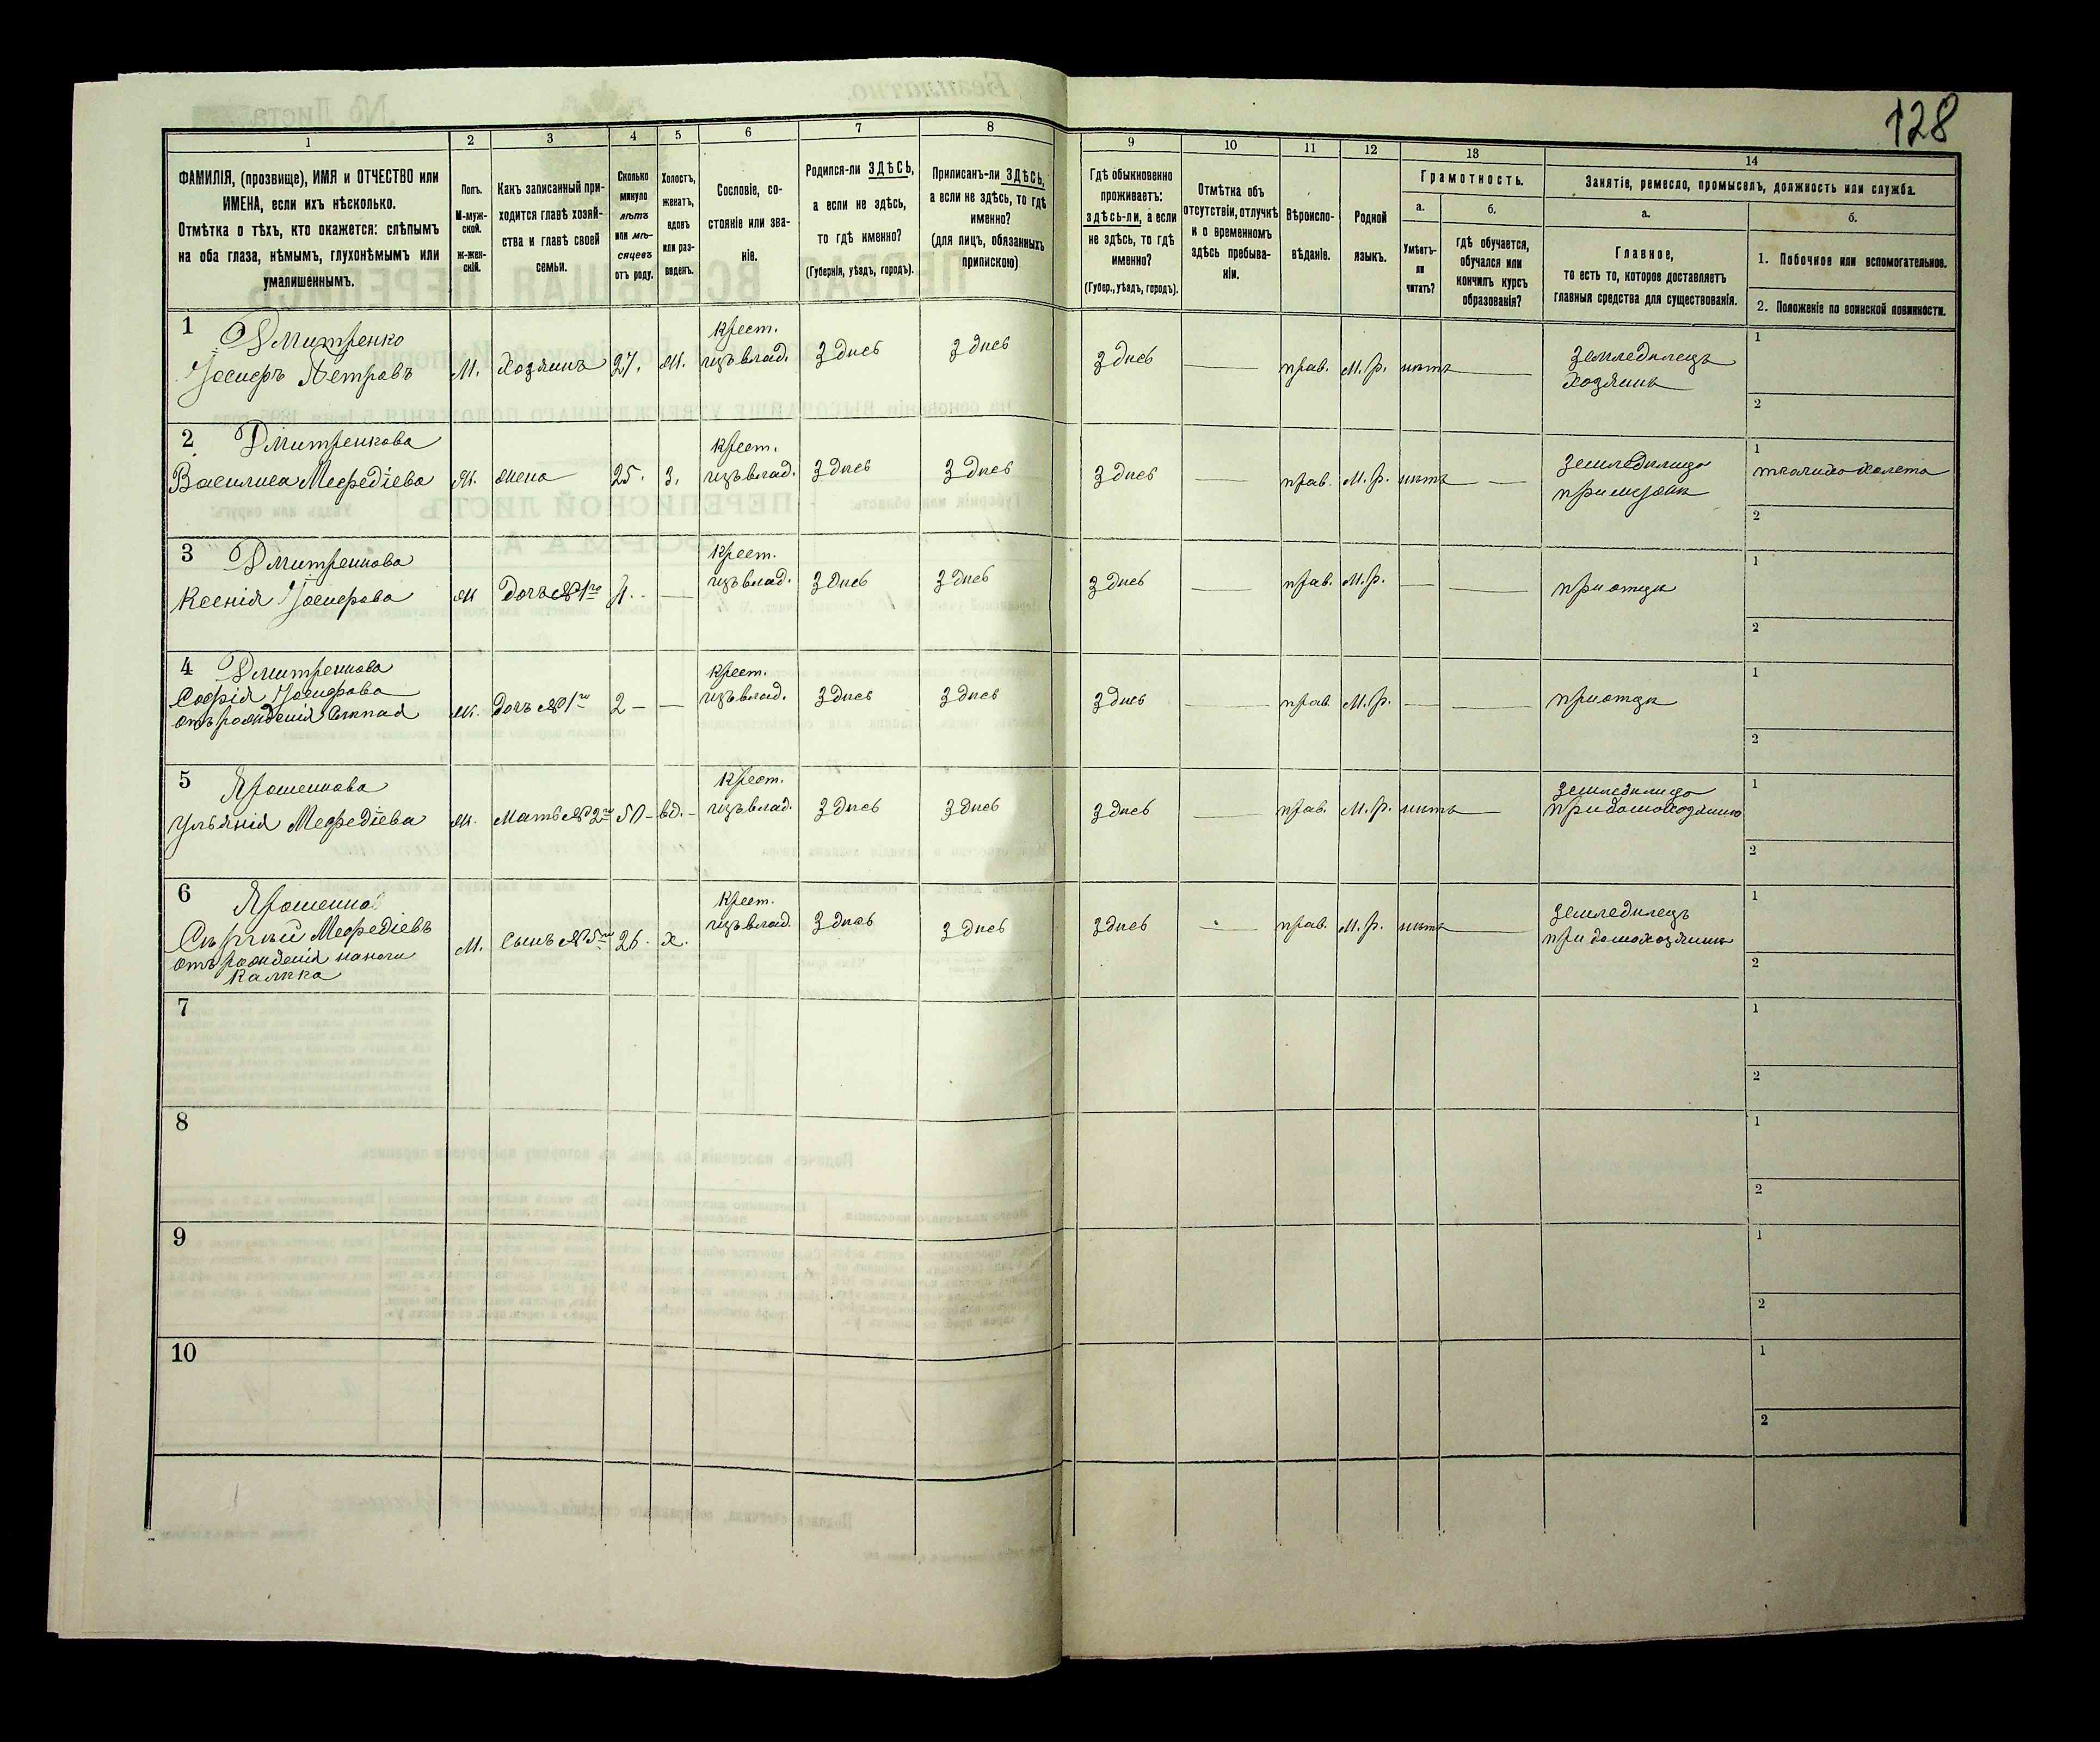 128
1 2 3 4 5 6 7 8 9 10 11 12 13 14
ФАМИЛІЯ, (прозвище), ИМЯ и ОТЧЕСТВО или
ИМЕНА, если ихъ нѣсколько.
Отмѣтка о тѣхъ, кто окажется: слѣпымъ
на оба глаза, нѣмымъ, глухонѣмымъ или
умалишеннымъ.
Полъ.
М-муж-
ской.
Ж-жен-
скій.
Какъ записанный при-
ходится главѣ хозяй-
ства и главѣ своей
семьи.
Сколько
минуло
лѣтъ
или мѣ-
сяцевъ
отъ роду.
Холостъ,
женатъ,
вдовъ
или раз-
веденъ.
Сословіе, со-
стояніе или зва-
ніе.
Родился-ли ЗДѢСЬ,
а если не здѣсь,
то гдѣ именно?
(Губернія, уѣздъ, городъ).
Приписанъ-ли ЗДѢСЬ,
а если не здѣсь, то гдѣ
именно?
(для лицъ, обязанныхъ
припискою)
Гдѣ обыкновенно
проживаетъ:
здѣсь-ли, а если
не здѣсь, то гдѣ
именно?
(Губер., уѣздъ, городъ).
Отмѣтка объ
отсутствіи, отлучкѣ
и о временномъ
здѣсь пребыва-
ніи.
Вѣроиспо-
вѣданіе.
Родной
языкъ.
Грамотность.
а.
Умѣетъ-
ли
читать?
б.
гдѣ обучается,
обучался или
кончилъ курсъ
образованія?
Занятіе, ремесло, промыселъ, должность или служба.
а.
Главное,
то есть то, которое доставляетъ
главныя средства для существованія.
б.
1. Побочное или вспомогательное.
2. Положеніе по воинской повинности.
1 Дмитренко Крест. 1
Іосифъ Петровъ М. Хозяинъ 27. изъ влад. здѣсь здѣсь здѣсь — прав. М.р. нѣтъ — земледѣлецъ
хозяинъ
2
2 Дмитренкова Крест. 1
Василиса Мефодіева Ж. жена 25. З. изъ влад. здѣсь здѣсь здѣсь — прав. М.р. нѣтъ — земледѣлица
при мужѣ
2
3 Дмитренкова Крест. 1
Ксенія Іосифова Ж дочь №1го 4. — изъ влад. здѣсь здѣсь здѣсь — прав. М.р. — — при отцѣ
2
4 Дмитренкова Крест. 1
Софія Іосифова
отъ рожденія слѣпая Ж. дочь №1го 2 — — изъ влад. здѣсь здѣсь здѣсь — прав М.р. — — при отцѣ
2
5 Ярошенкова Крест. земледѣлица 1
Ульянія Мефодіева Ж. Мать №2го 50 — вд. — изъ влад. здѣсь здѣсь здѣсь — прав. М.р. нѣтъ —
2
6 Ярошенко Крест. 1
Сергѣй Мефодіевъ М. Сынъ №5го 26. х. изъ влад. здѣсь здѣсь здѣсь прав. М.р. нѣтъ — земледѣлецъ
отъ рожденія на ноги при домохозяинѣ
Калѣка
2
7 1
2
8 1
2
9 1
2
10 1
2